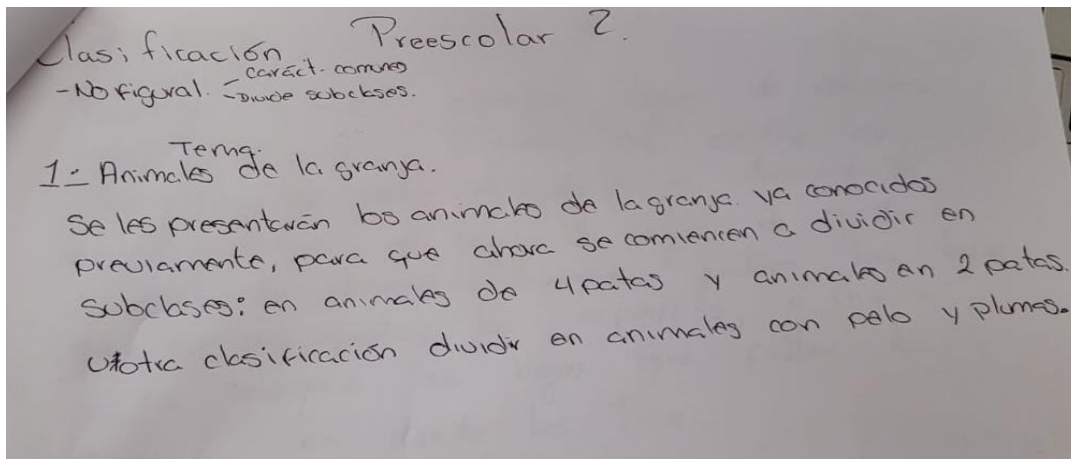 Clasificación Preescolar 2.
- No figural. - caráct. comunes
- Divide subclases.
Tema.
1.- Animales de la granja.
Se les presentarán los animales de la granja ya conocidos
previamente, para que ahora se comiencen a dividir en
subclases: en animales de 4 patas y animales en 2 patas.
U otra clasificación dividir en animales con pelo y plumas.